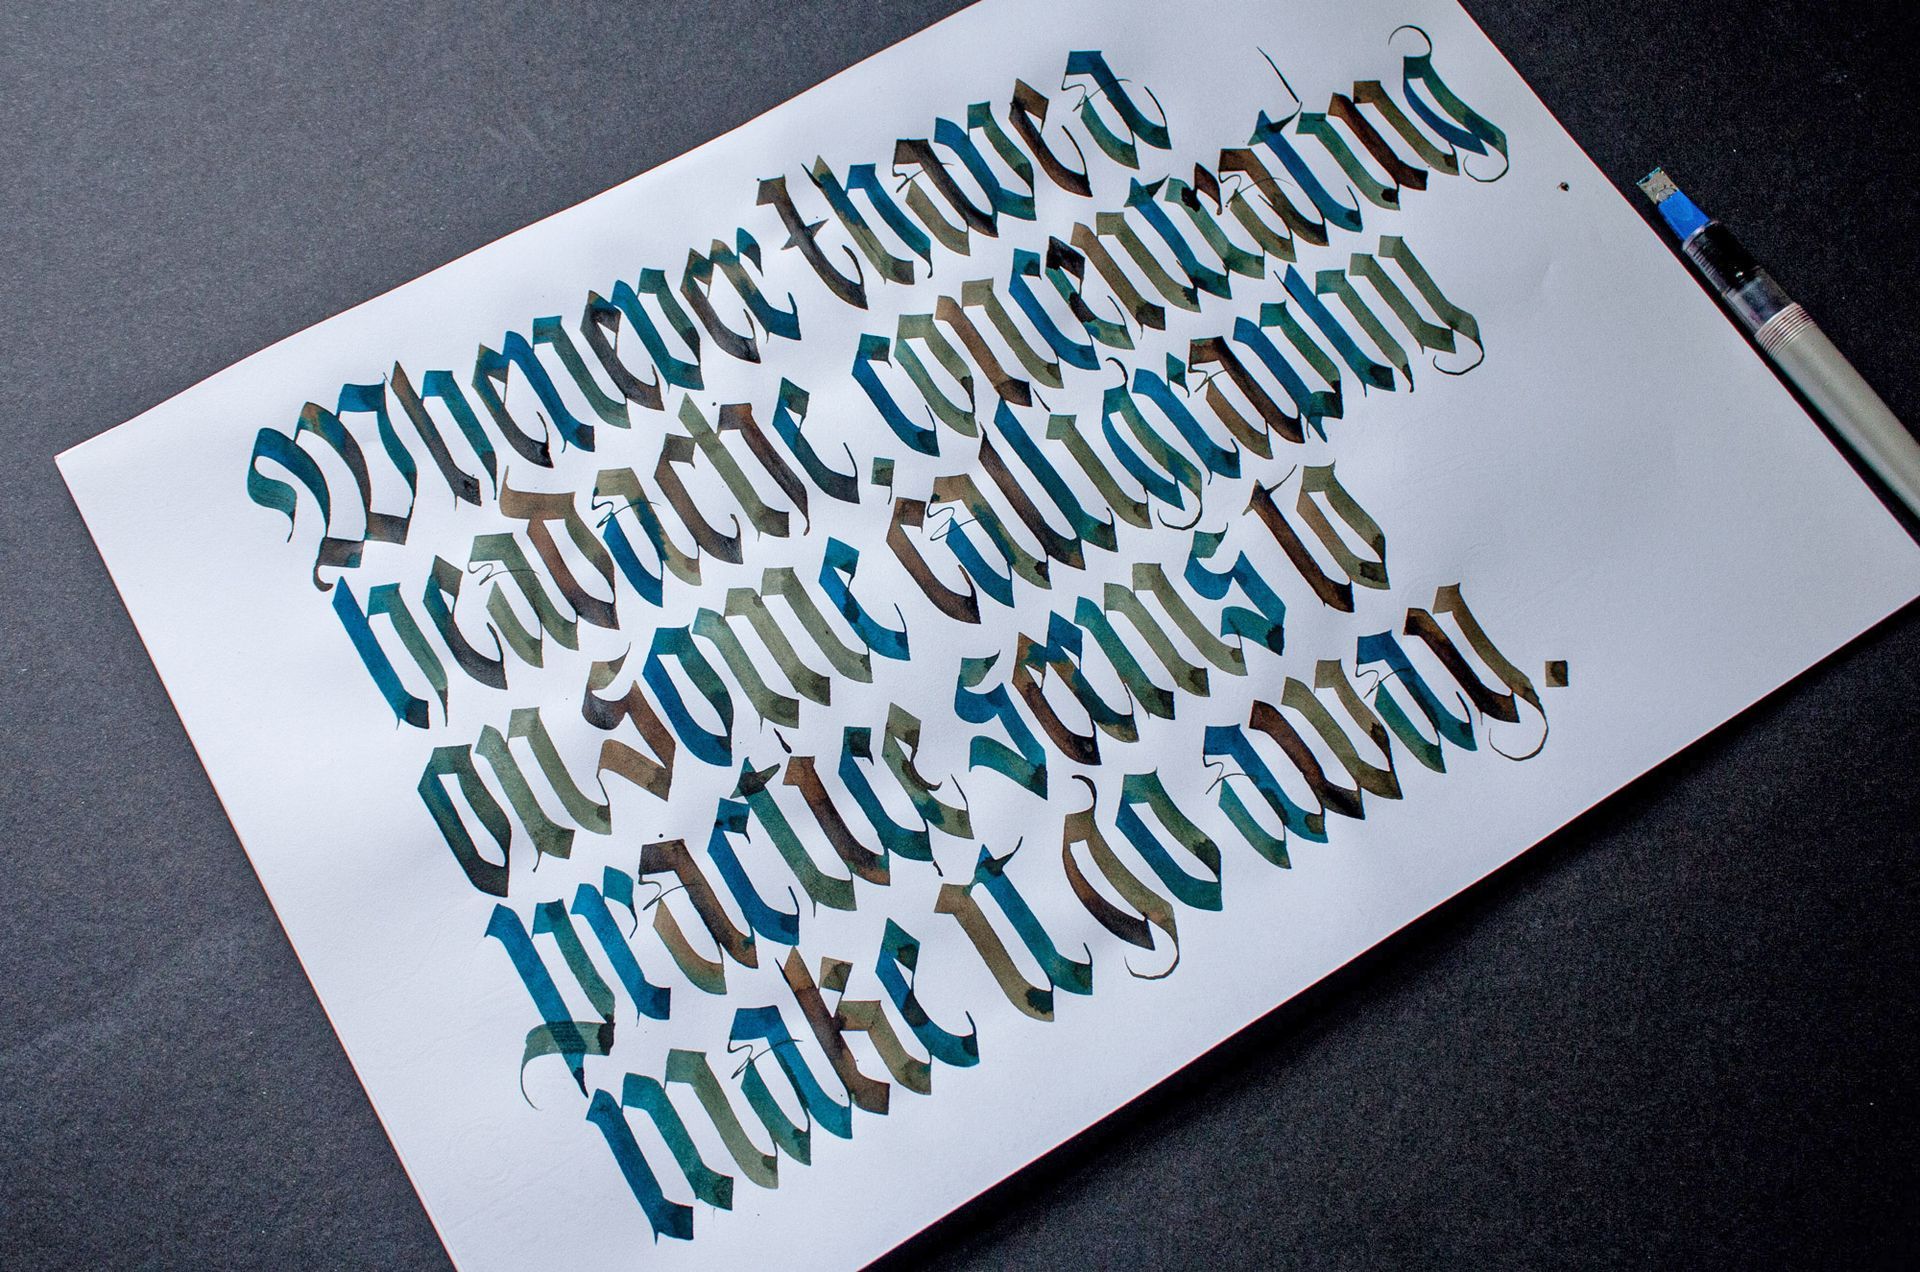 Whenever I have a
headache. concentrating
on some calligraphy
practice seems to
make it go away.